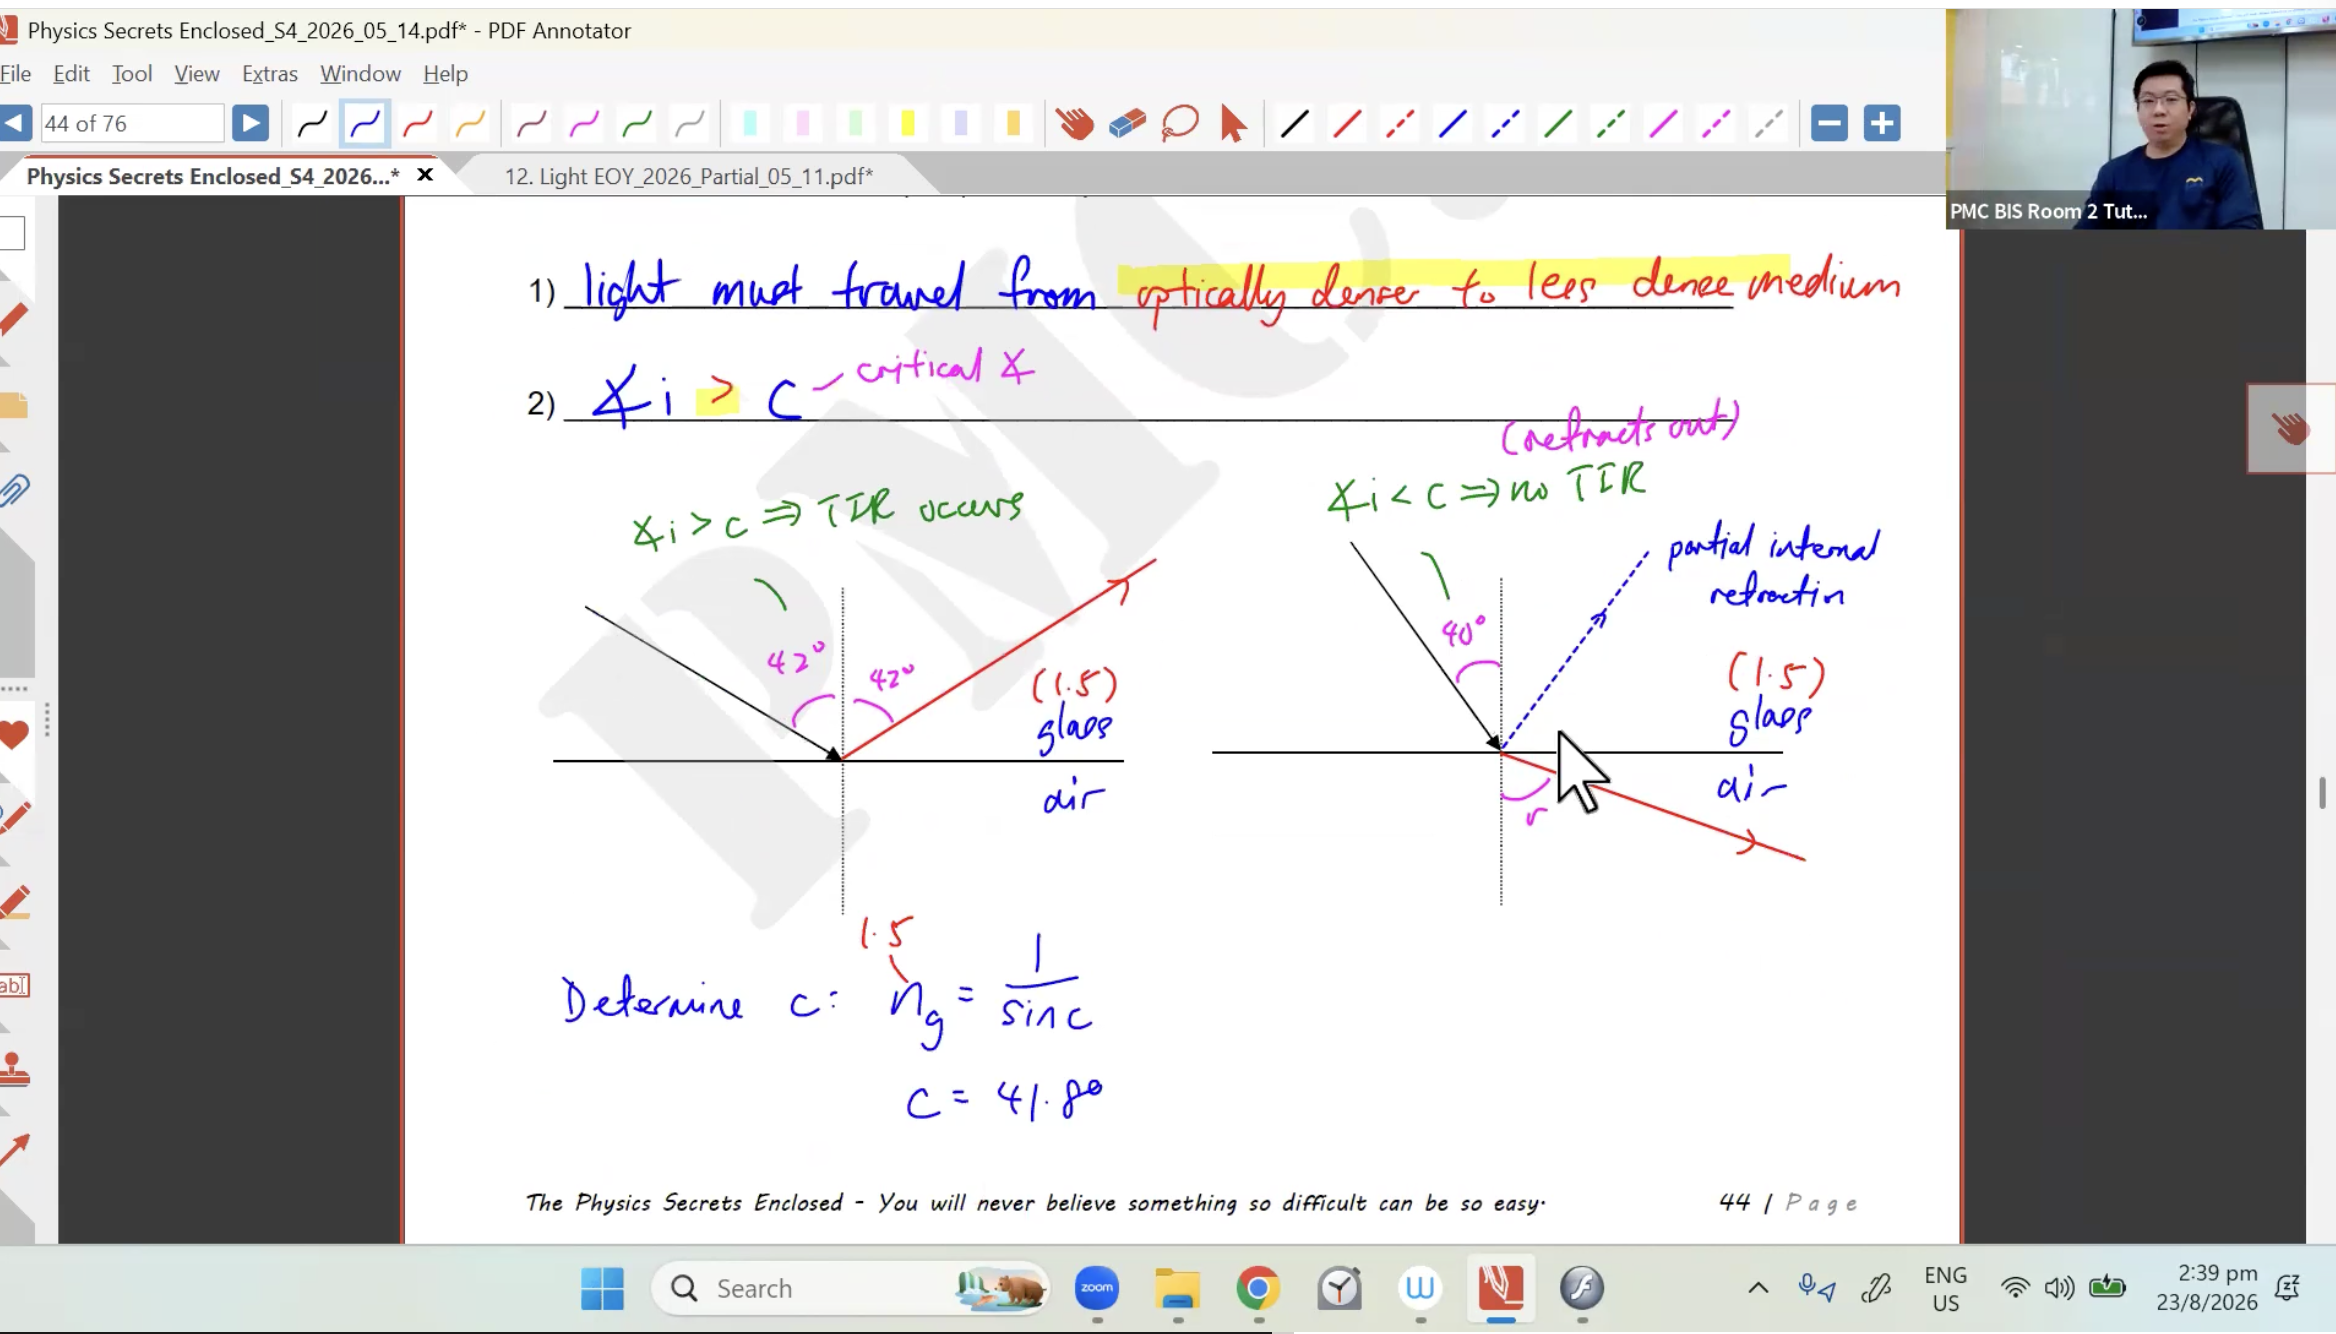 Physics Secrets Enclosed_S4_2026_05_14.pdf* - PDF Annotator
File Edit Tool View Extras Window Help
44 of 76
Physics Secrets Enclosed_S4_2026...* x
12. Light EOY_2026_Partial_05_11.pdf*
PMC BIS Room 2 Tut...
PMC
1) light must travel from optically denser to less dense medium
2) ∡i > c
critical ∡
(refracts out)
∡i > c ⇒ TIR occurs
∡i < c ⇒ no TIR
partial internal
refraction
42° 42°
(1.5)
glass
air
40°
(1.5)
glass
air
r
1.5
Determine c: ng = 1
sin c
c = 41.8°
The Physics Secrets Enclosed - You will never believe something so difficult can be so easy.
44 | Page
ab
Search
zoom
W
ENG
US
2:39 pm
23/8/2026